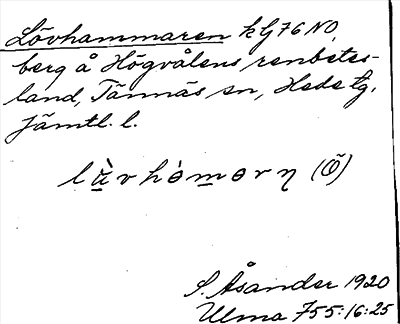 Lövhammaren kG76NO,
berg å Högvålens renbetes-
land, Tännäs sn, Hede tg,
Jämtl. l.
(Ö)
S. Åsander 1920
Ulma 755:16:25